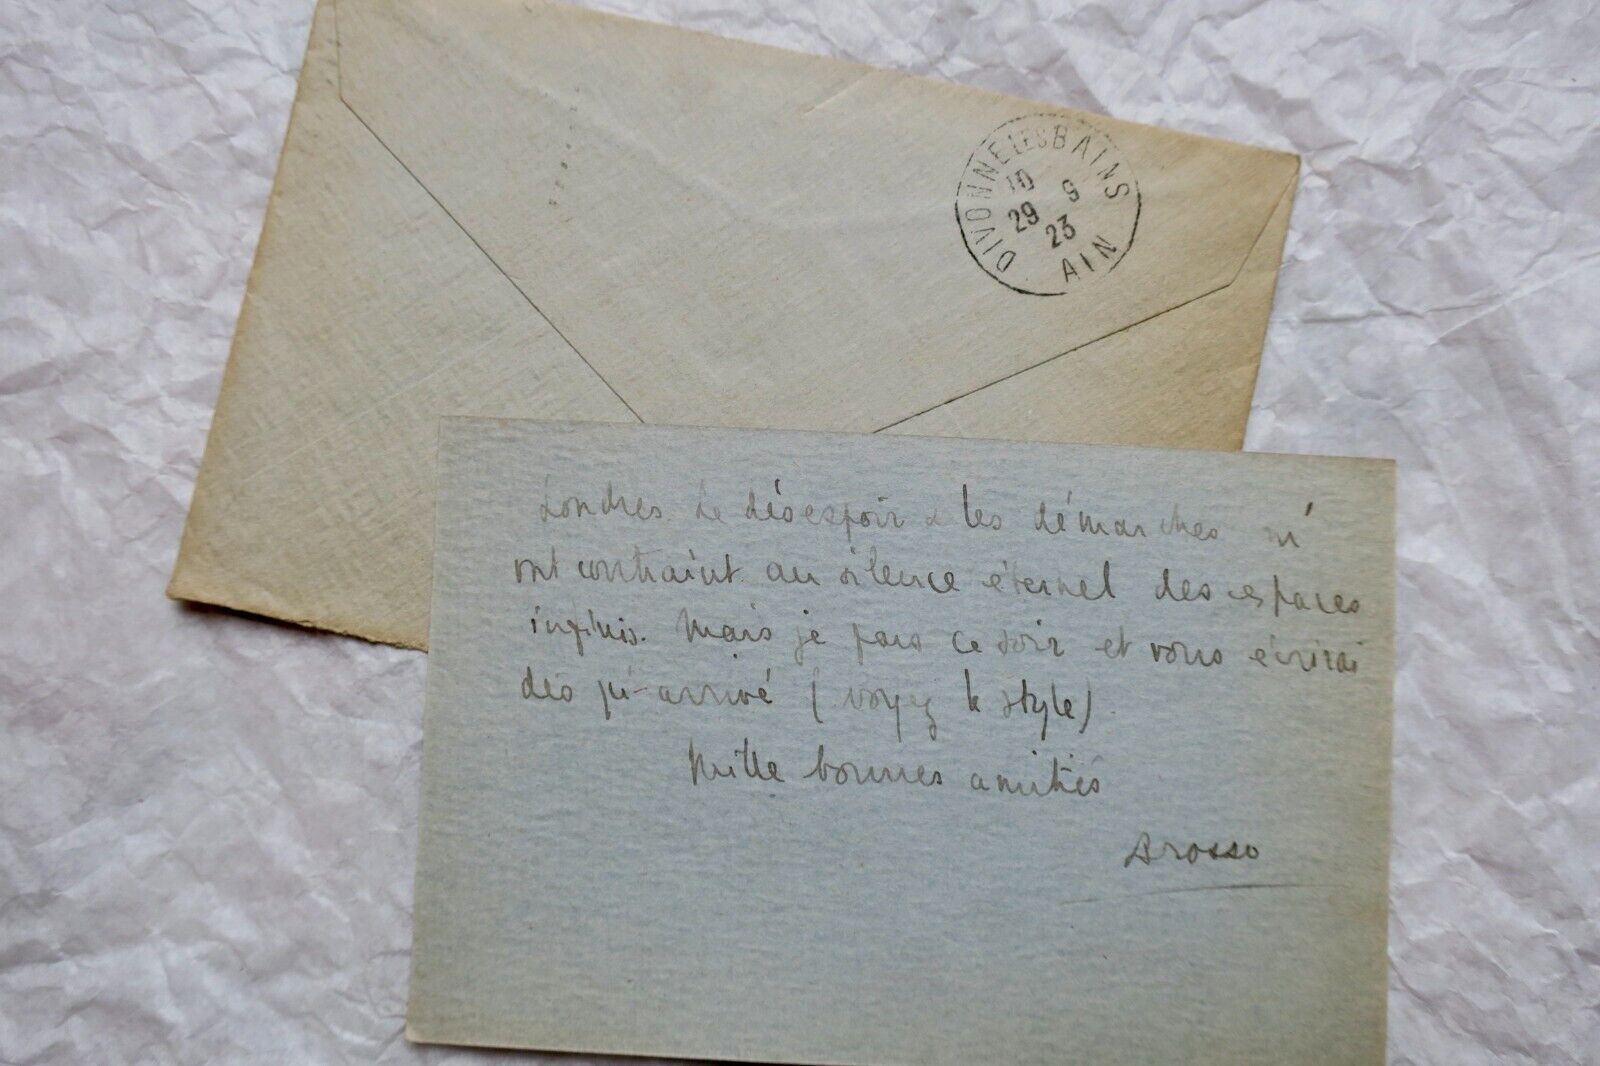 DIVONNE LES BAINS
10 9
29 23
AIN
Londres. Le désespoir & les démarches m'
ont contraint au silence éternel des espaces
infinis. Mais je pars ce soir et vous écrirai
dès qu'arrivé (voyez le style).
Mille bonnes amitiés